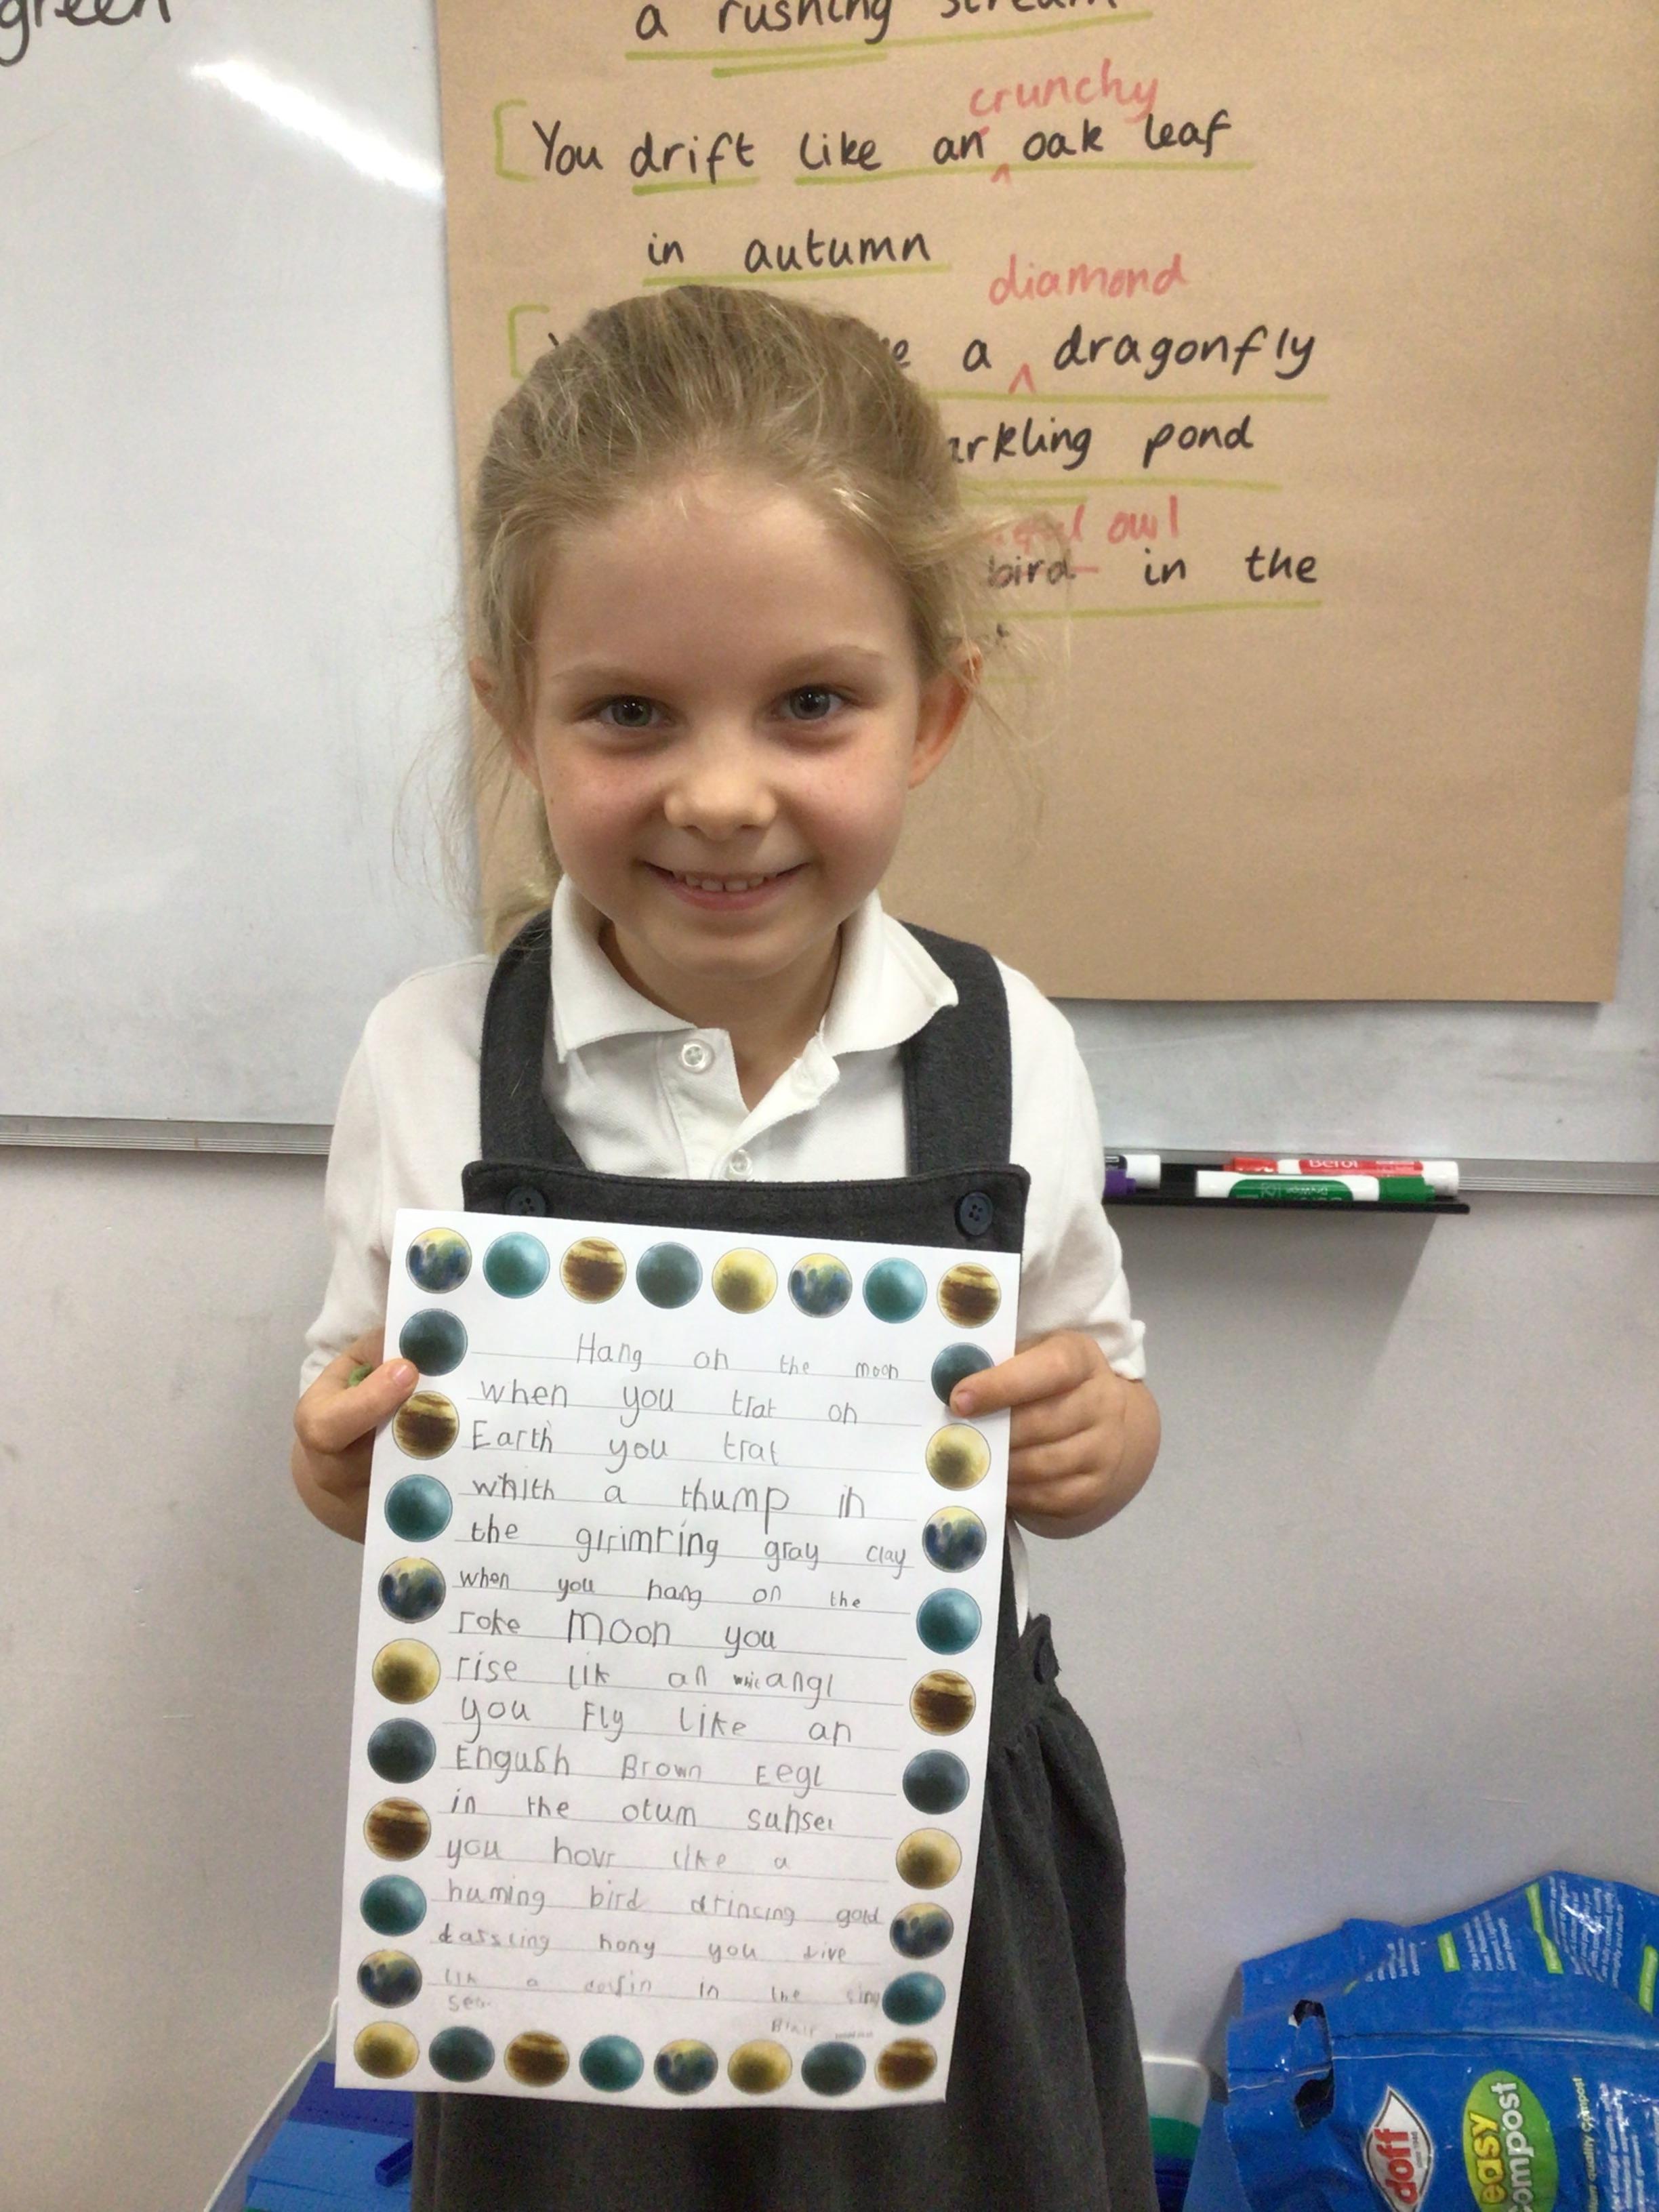 green
a rushing stream
crunchy
You drift like an ^ oak leaf
in autumn
diamond
a ^ dragonfly
pond
owl
bird in the
Hang on the moon
when you trat on
Earth you trat
whith a thump in
the glrimring gray clay
when you hang on the
roke moon you
rise lik an angl
you Fly like an
Engush Brown Eegl
in the otum sunset
you hovr like a
huming bird drincing gold
dassling hony you dive
lik a dolfin in the sing
sea.
Blair
Berol
doff
easy
compost